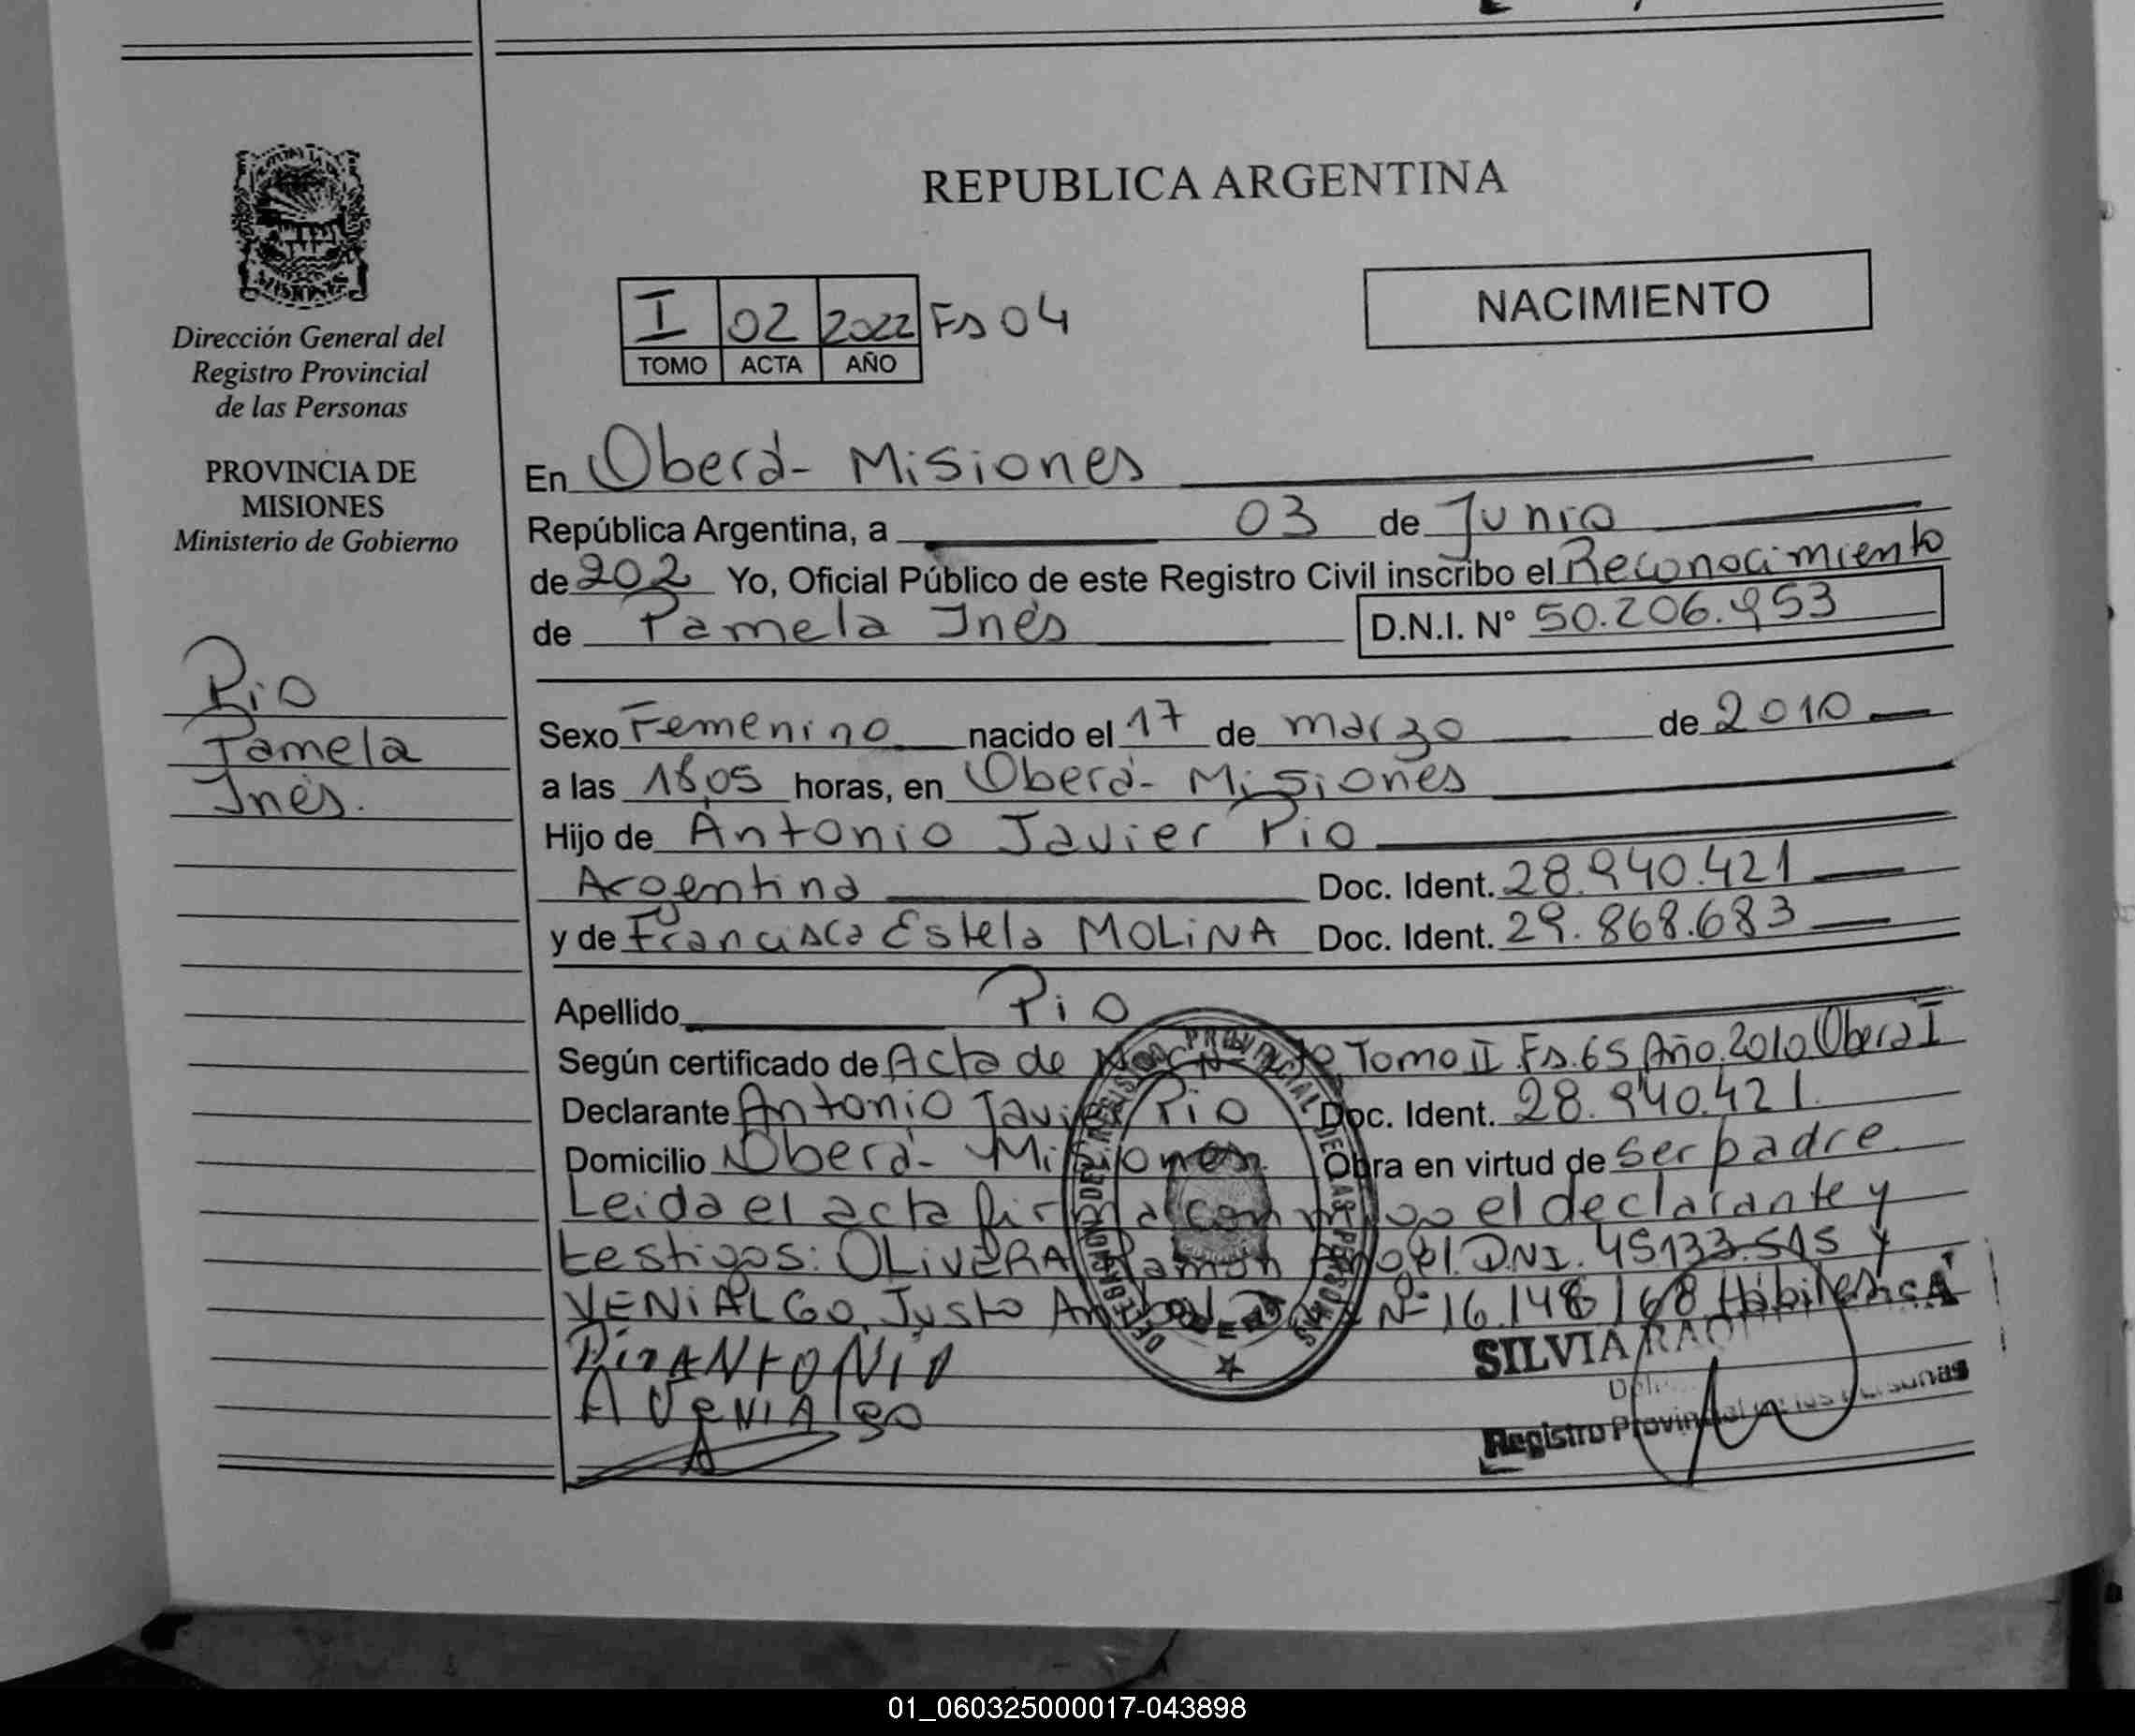 REPUBLICA ARGENTINA
NACIMIENTO
I 02 2022 Fs 04
TOMO ACTA AÑO
Dirección General del
Registro Provincial
de las Personas
PROVINCIA DE
MISIONES
Ministerio de Gobierno
Pio
Pamela
Inés.
En Oberá - Misiones
República Argentina, a 03 de Junio
de 202 Yo, Oficial Público de este Registro Civil inscribo el Reconocimiento
de Pamela Inés D.N.I. Nº 50.206.953
Sexo Femenino nacido el 17 de marzo de 2010
a las 18,05 horas, en Oberá - Misiones
Hijo de Antonio Javier Pio
Argentina Doc. Ident. 28.940.421
y de Francisca Estela MOLINA Doc. Ident. 29.868.683
Apellido Pio
Según certificado de Acta de Tomo II Fs. 65 Año 2010 Oberá I
Declarante Antonio Javier Pio Doc. Ident. 28.940.421.
Domicilio Oberá - Misiones Obra en virtud de ser padre.
Leida el acta firma conmigo el declarante y
testigos: OLIVERA Ramón DNI. 45133.515 y
VENIALGO, Justo Nº 16.148.168 Hábiles
Pio ANTONIO
A VENIAlgo
SILVIA
Registro Provincial de las Personas
REGISTRO PROVINCIAL DE LAS PERSONAS
01_060325000017-043898